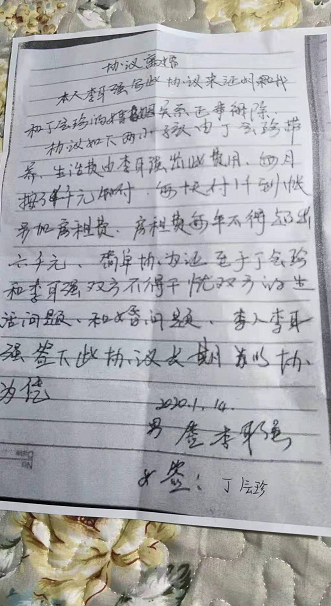 协议离婚
本人李耳强写此协议来证明和我
和丁会珍的婚姻关系正季解除
协议如下两小孩由丁会珍带
养、生活费由李耳强出此费用、每月
按4千元付、每次付1千到帐
另加房租费、房租费每年不得超出
六千元、简单协议还至于丁会珍
和李耳强双方不得干扰双方的生
活问题、和婚问题、李人李耳
强签下此协议长期为此协
为信
2020.1.14.
男签李耶强
女签：丁会珍
No
Date